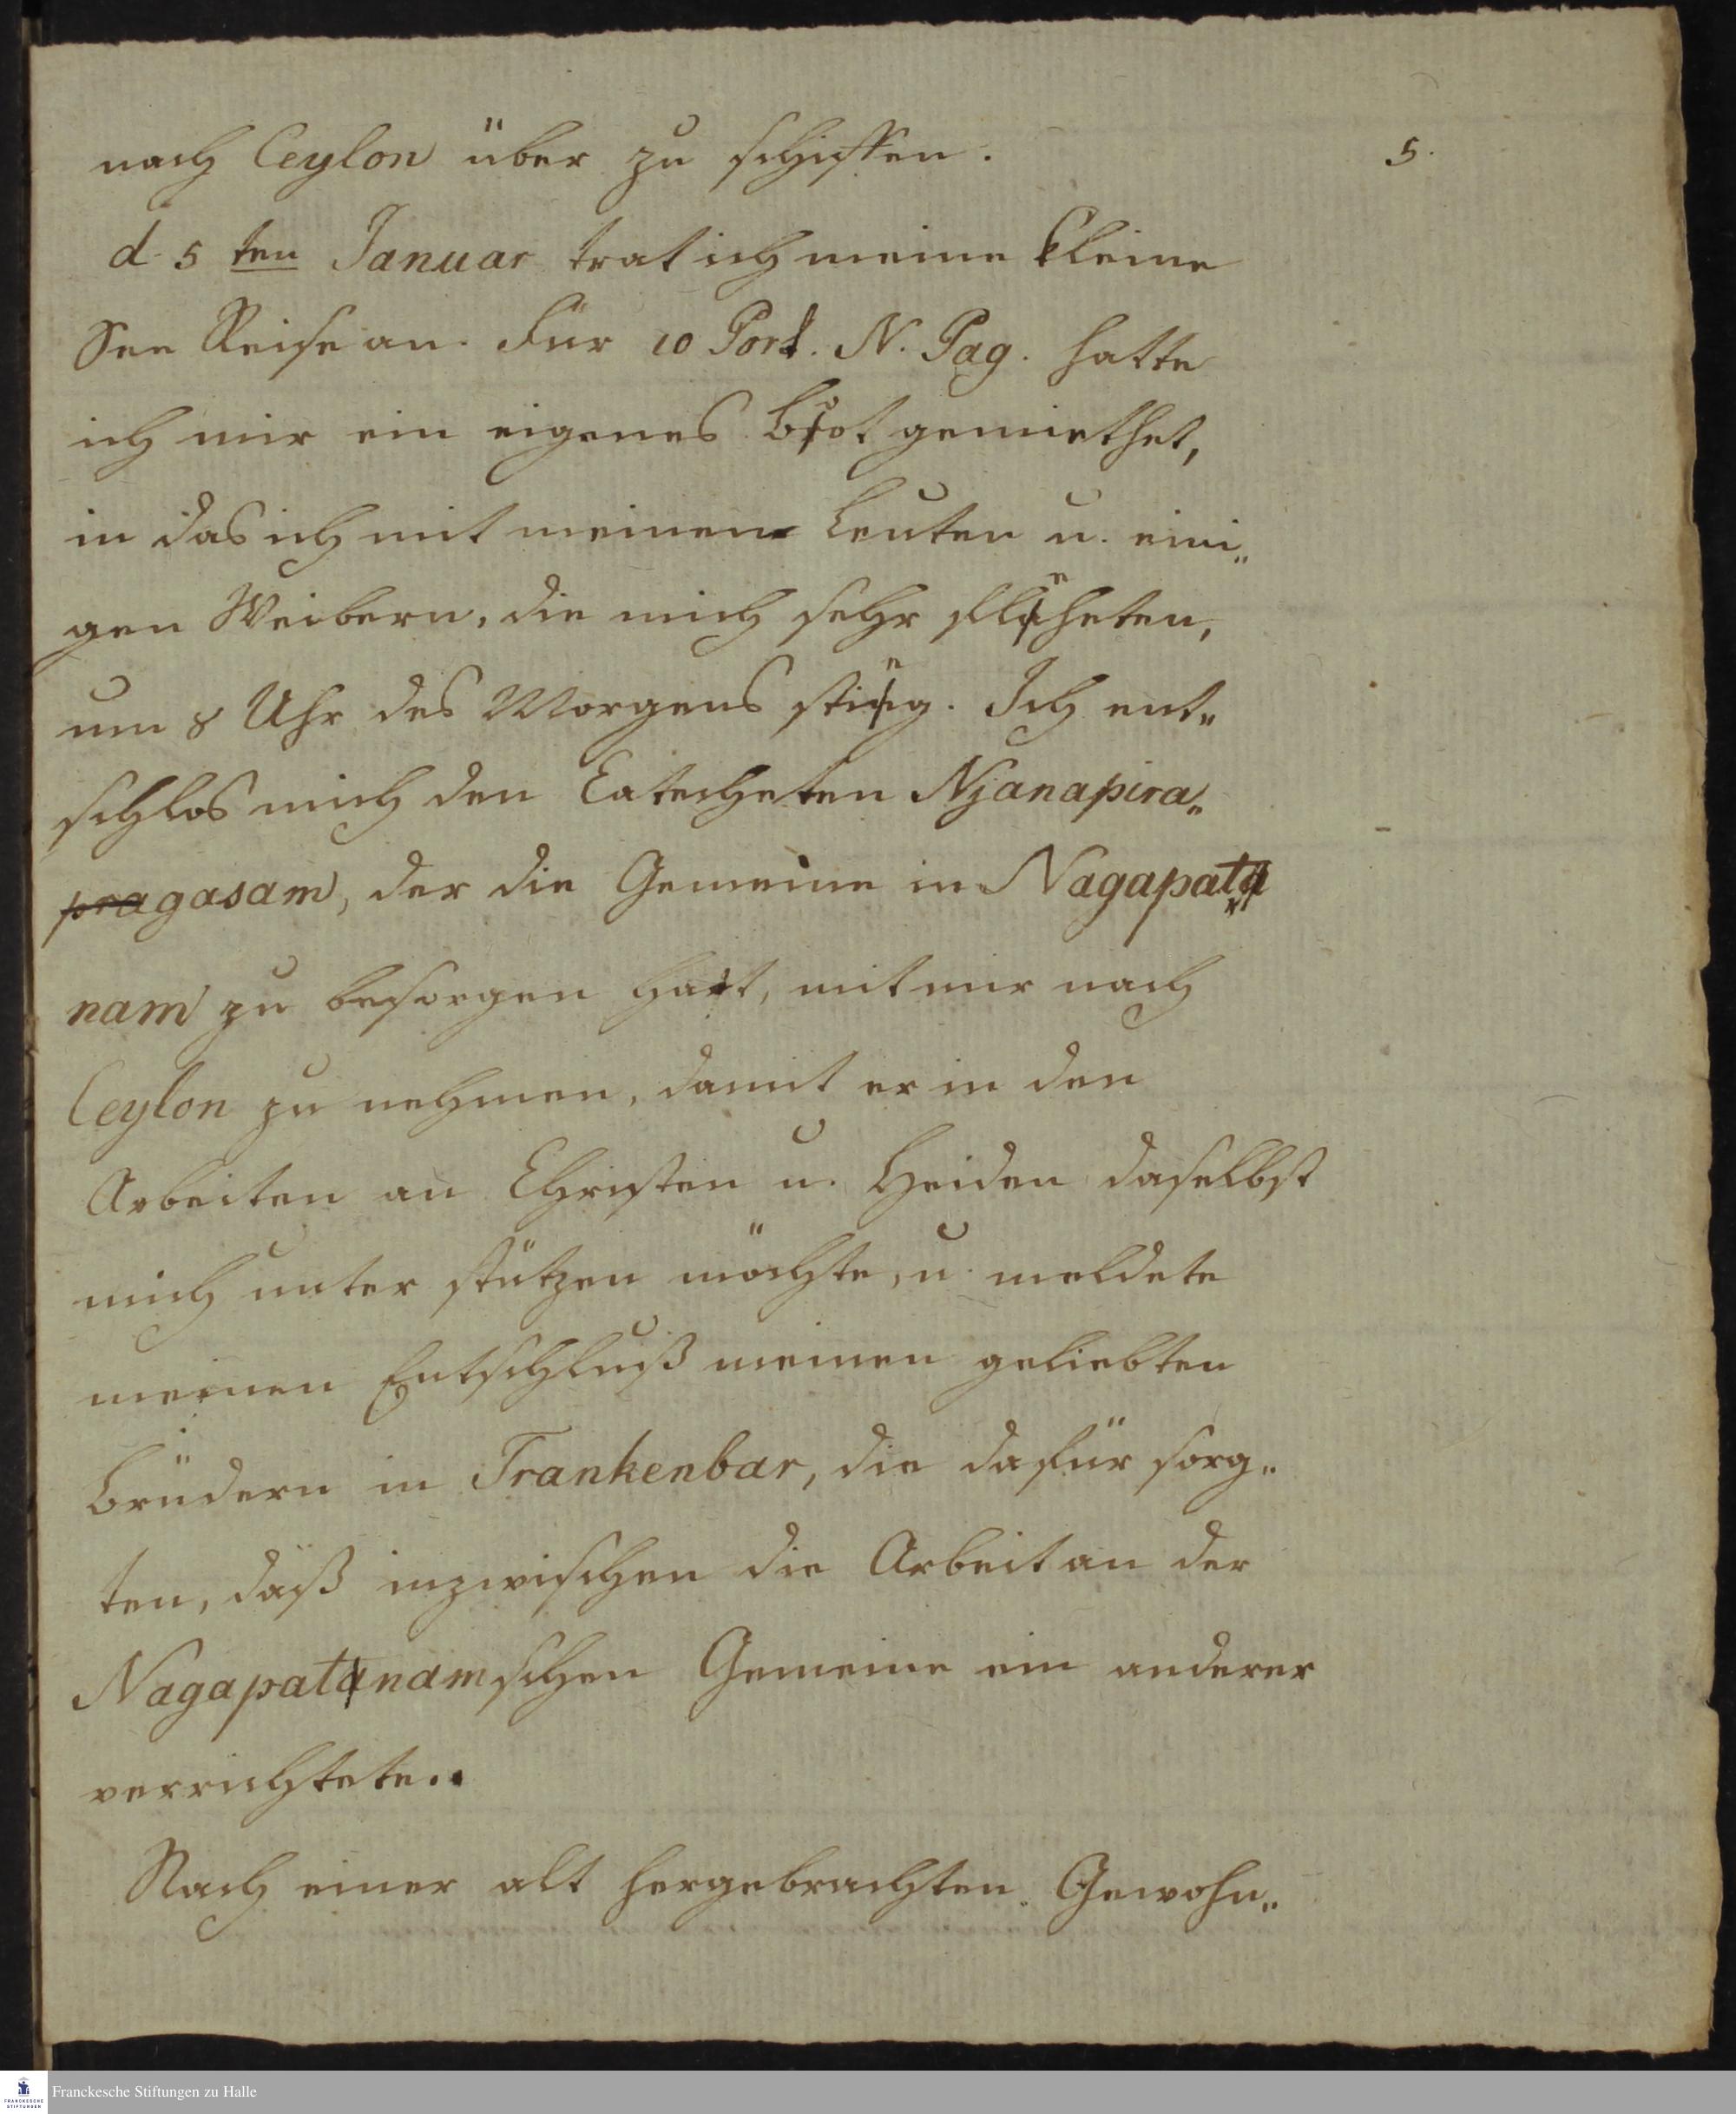 nach Ceylon über zu schiffen.
5.
d. 5 ten Januar trat ich meine kleine
See Reise an. Für 10 Port. N. Pag. hatte
ich mir ein eigenes Boot gemiethet,
in das ich mit meinen Leuten u. eini„
gen Weibern, die mich sehr fleheten,
um 8 Uhr des Morgens stieg. Ich ent„
schlos mich den Catecheten Njanapira„
pragasam, der die Gemeine in Nagapata„
nam zu besorgen hat, mit mir nach
Ceylon zu nehmen, damit er in den
Arbeiten an Christen u. Heiden daselbst
mich unter stützen möchte, u. meldete
meinen Entschluß meinen geliebten
Brüdern in Trankenbar, die dafür sorg„
ten, daß inzwischen die Arbeit an der
Nagapatanamschen Gemeine ein anderer
verrichtete..
Nach einer alt hergebrachten Gewohn„
FRANCKESCHE STIFTUNGEN
Franckesche Stiftungen zu Halle